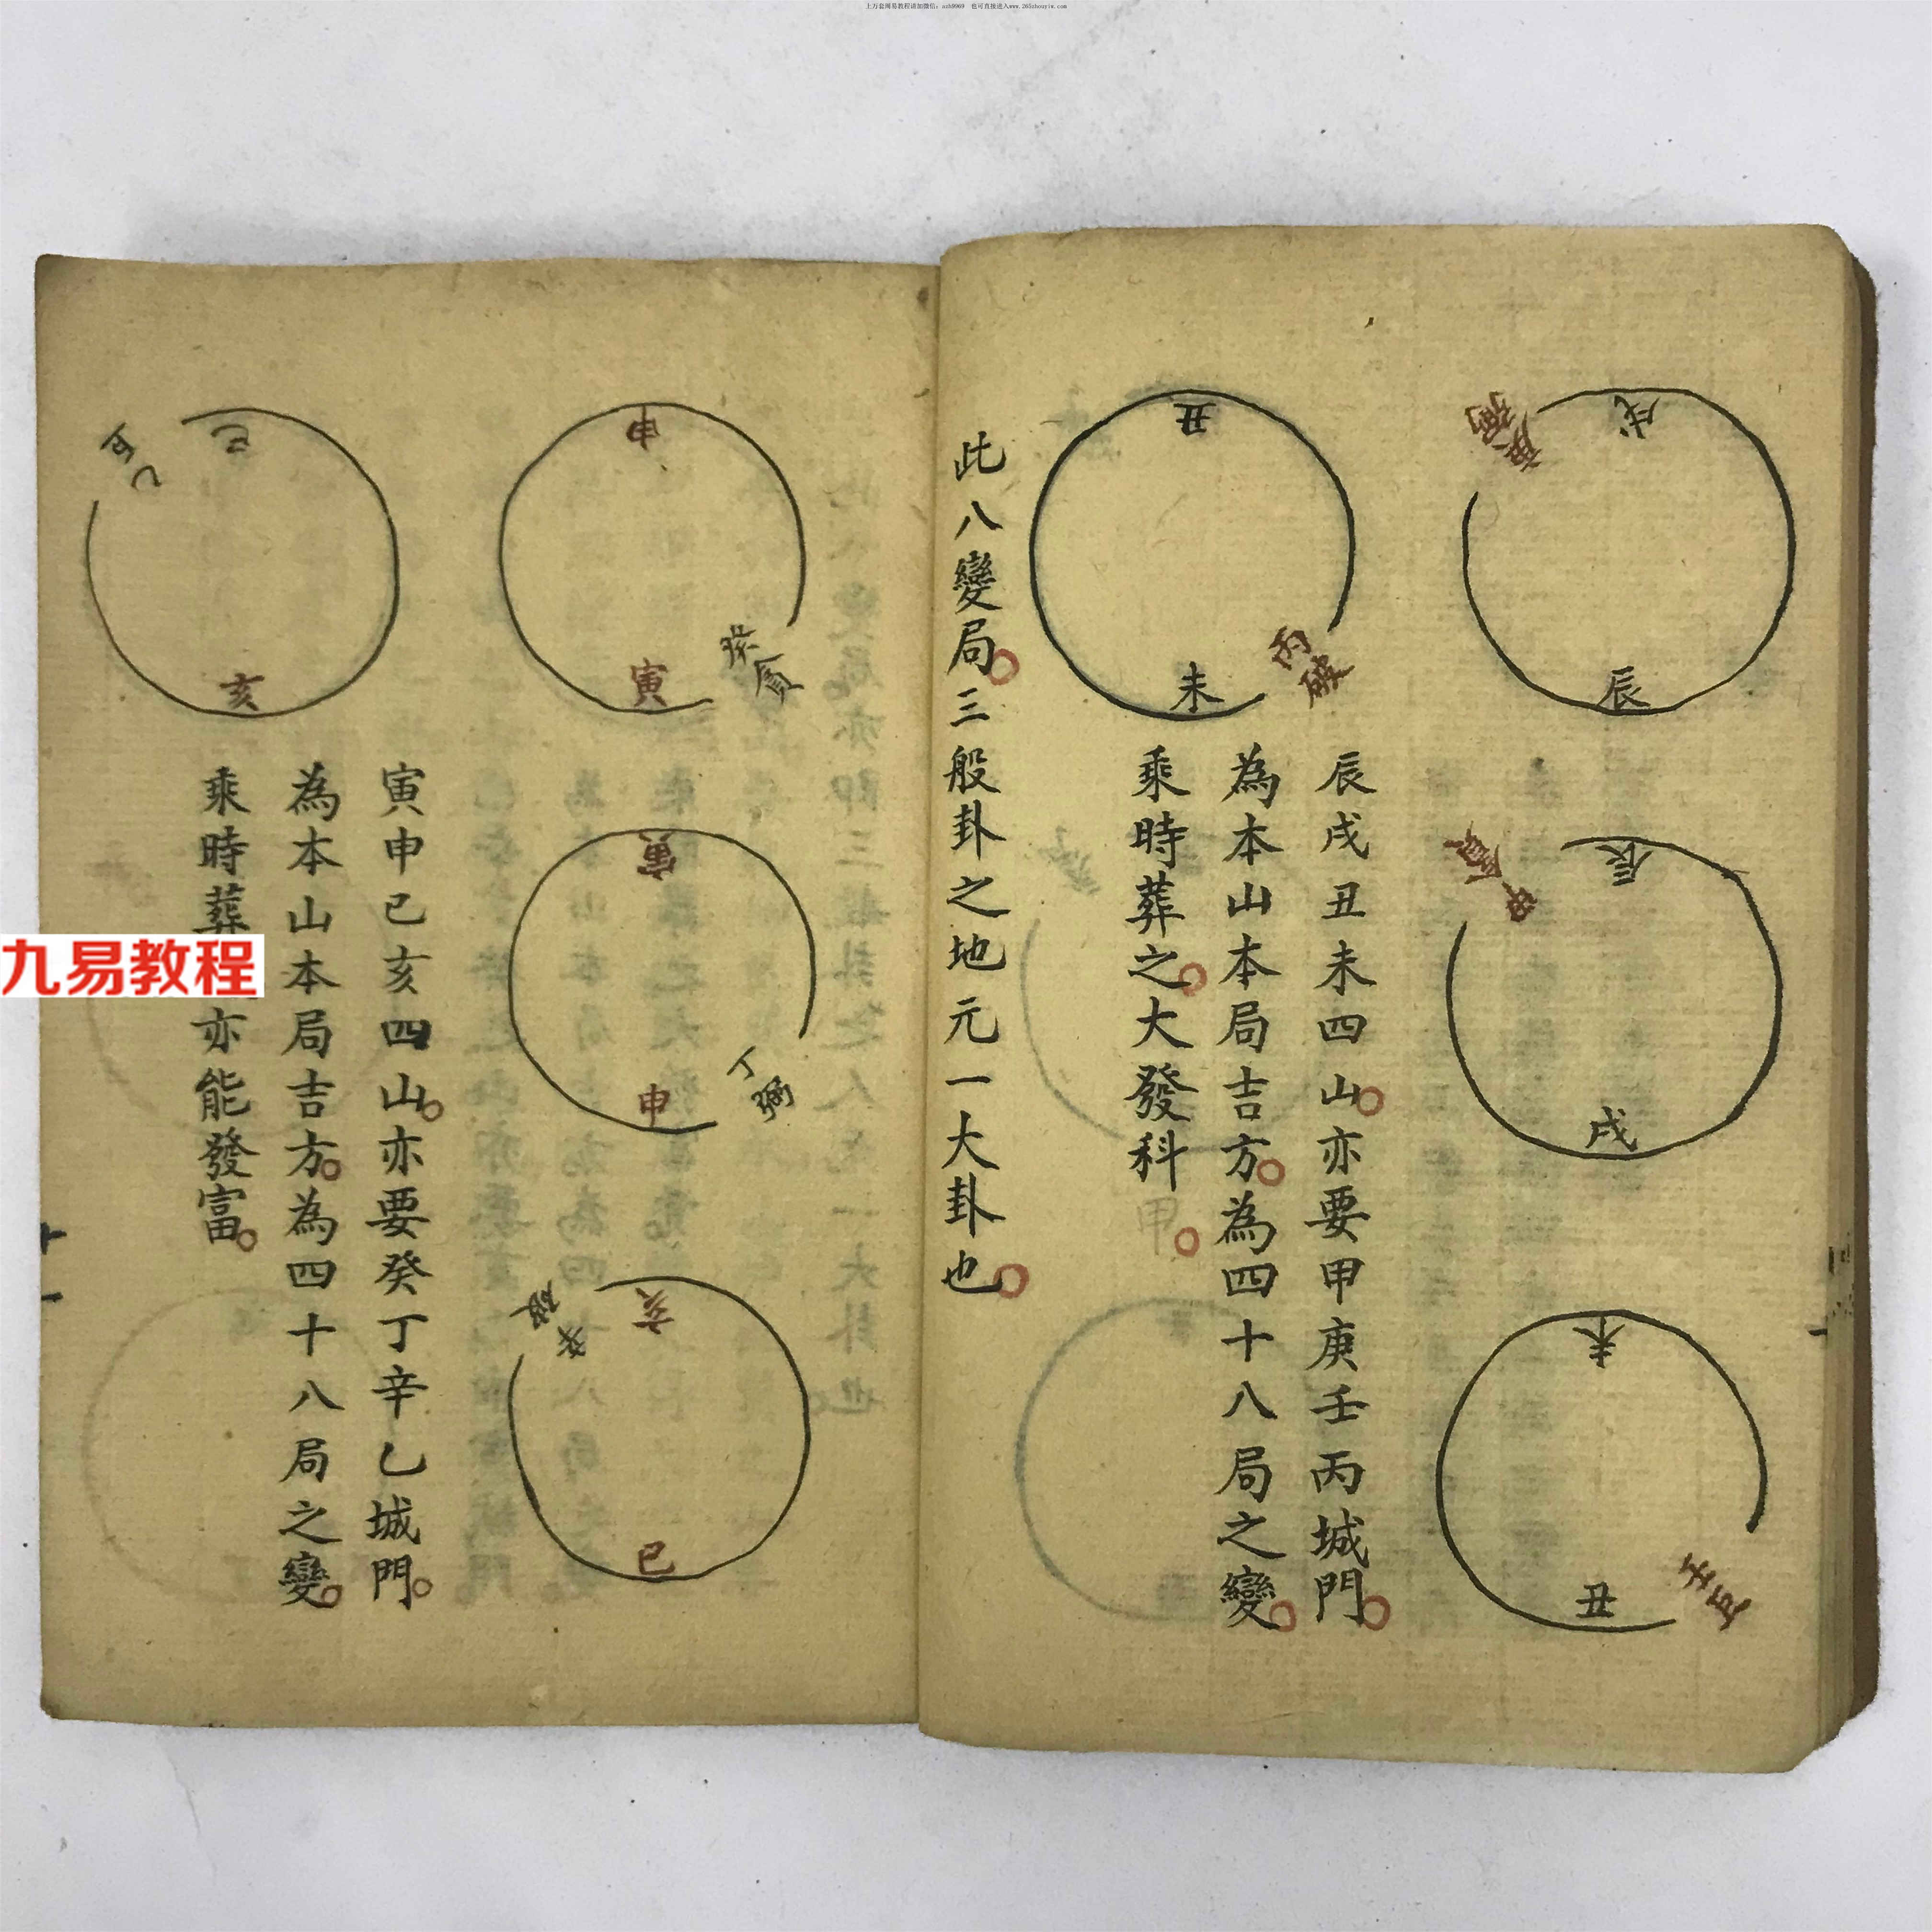 上万套周易教程请加微信：szh9969 也可直接进入www.265zhouyiw.com
戌
庚弼
辰
辰
甲貪
戌
未
壬巨
丑
辰戌丑未四山亦要甲庚壬丙城門
為本山本局吉方為四十八局之變
乘時葬之大發科甲
丑
丙破
未
此八變局三般卦之地元一大卦也
申
癸貪
寅
寅
丁弼
申
亥
破
巳
寅申巳亥四山亦要癸丁辛乙城門
為本山本局吉方為四十八局之變
乘時葬
亦能發富
巳
乙巨
亥
九易教程